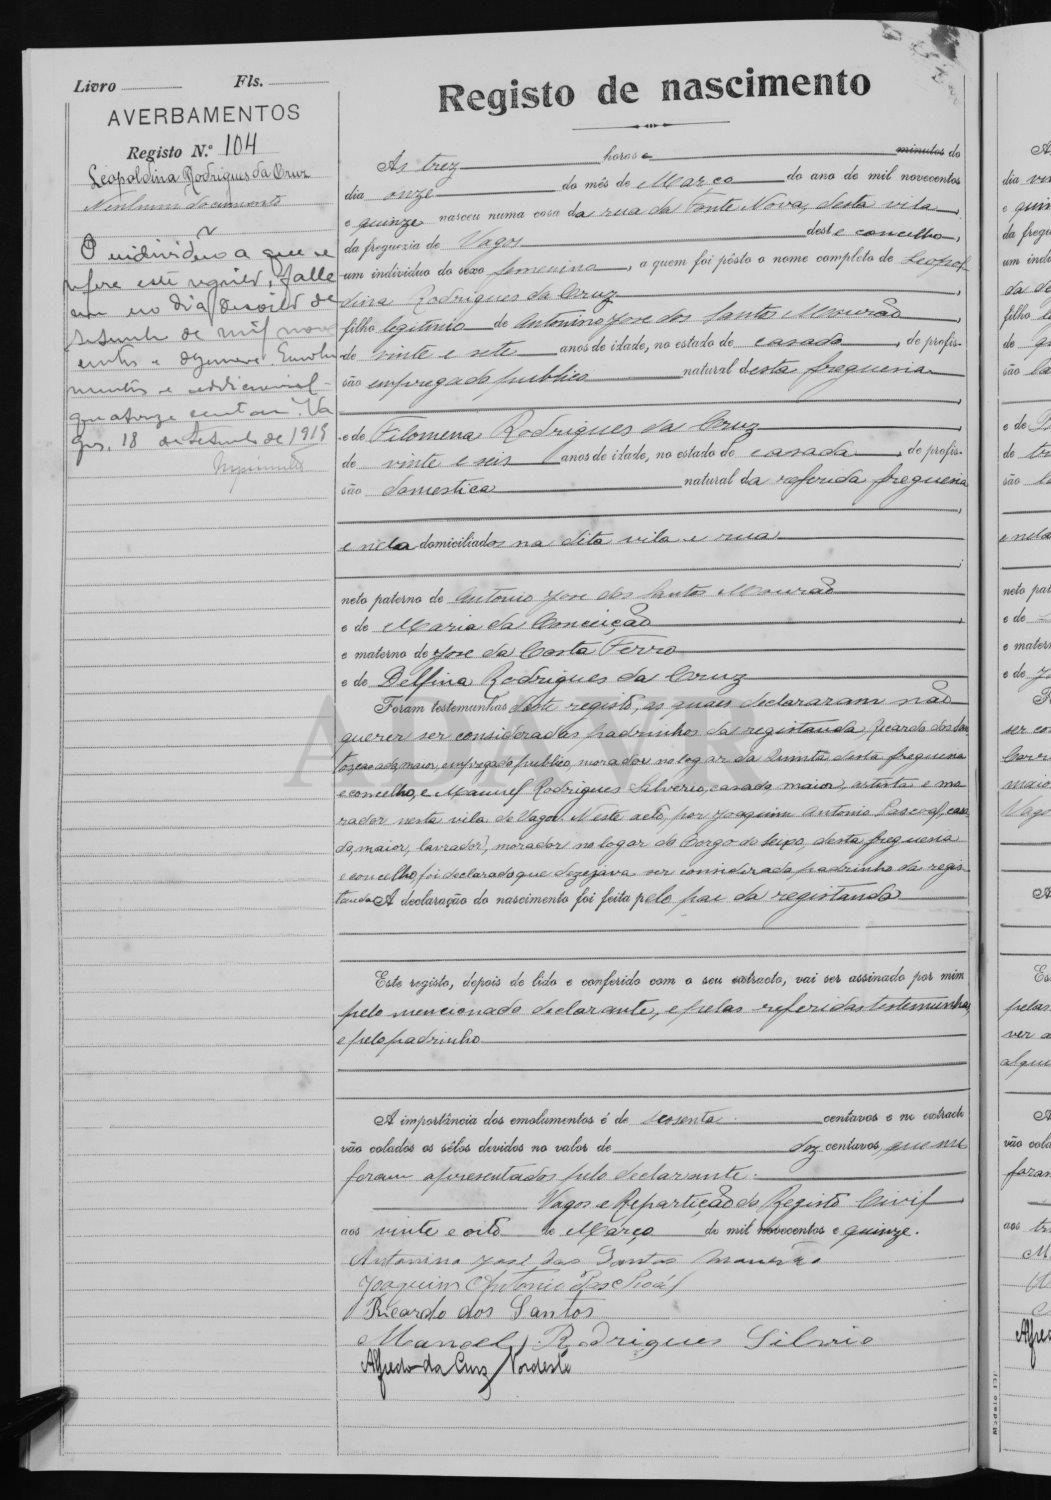 Livro Fls.
AVERBAMENTOS
Registo N.º 104
Leopoldina Rodrigues da Cruz
Nenhum documento
O individuo a que se
refere este registo, falle
ceu no dia dezoito de
Setembro de mil nove
centos e dezenove. Emolu
mentos e addicional
quatorze centavos. Va
gos, 18 de Setembro de 1919
Registo de nascimento
Ás trez horas e minutos do
dia onze do mês de Março do ano de mil novecentos
e quinze nasceu numa casa da rua da Fonte Nova, desta vila,
da freguezia de Vagos deste concelho,
um individuo do sexo femenino, a quem foi pôsto o nome completo de Leopol
dina Rodrigues da Cruz,
filho legitimo de Antonino Jose dos Santos Mourão,
de vinte e sete anos de idade, no estado de casado, de profis-
são empregado publico natural desta freguesia
,
e de Filomena Rodrigues da Cruz,
de vinte e seis anos de idade, no estado de casada, de profis-
são domestica natural da referida freguesia
,
e nela domiciliados na dita vila e rua
;
neto paterno de Antonio Jose dos Santos Mourão
e de Maria da Conceição,
e materno de Jose da Costa Ferro
e de Delfina Rodrigues da Cruz
Foram testemunhas deste registo, as quaes declararam não
querer ser consideradas padrinhos da registanda, Ricardo dos San
tos, casado, maior, empregado publico, morador no logar da Quinta desta freguesia
e concelho, e Manuel Rodrigues Silverio, casado maior, artista e mo
rador nesta vila de Vagos. Neste acto, por Joaquim Antonio Pascoal, casa
do, maior, lavrador, morador no logar do Corgo do Seixo, desta freguesia
e concelho, foi declarado que dezejava ser considerado padrinho da regis
tanda A declaração do nascimento foi feita pelo pai da registanda
Este registo, depois de lido e conferido com o seu extracto, vai ser assinado por mim
pelo mencionado declarante, e pelas referidas testemunhas,
e pelo padrinho
A importância dos emolumentos é de sessenta centavos e no extracto
vão colados os sêlos devidos no valor de dez centavos, que me
foram apresentados pelo declarante.
Vagos e Repartição do Registo Civil
aos vinte e oito de Março de mil novecentos e quinze.
Antonino José dos Santos Mourão
Joaquim Antonio Pascoal
Ricardo dos Santos
Manoel Rodrigues Silvrio
Alfredo da Cruz Nordeste
ADAVR
Modelo 151